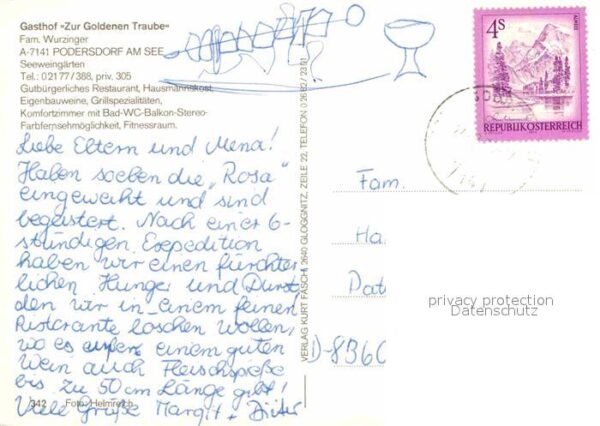 Gasthof »Zur Goldenen Traube«
Fam. Wurzinger
A-7141 PODERSDORF AM SEE
Seeweingärten
Tel.: 02177/388, priv. 305
Gutbürgerliches Restaurant, Hausmannskost
Eigenbauweine, Grillspezialitäten,
Komfortzimmer mit Bad-WC-Balkon-Stereo-
Farbfernsehmöglichkeit, Fitnessraum.
Liebe Eltern und Mena!
Haben soeben die „Rosa"
eingeweiht und sind
begeistert. Nach einer 6-
stündigen Expedition
haben wir einen fürchter
lichen Hunger und Durst
den wir in einem feinen
Ristorante löschen wollen,
wo es außer einem guten
Wein auch Fleischspieße
bis zu 50 cm Länge gibt!
Viele Grüße Margit + Dieter
342 Foto: Helmreich
VERLAG KURT FASCHA, 2640 GLOGGNITZ, ZEILE 22, TELEFON 0 26 62 /
4S
REPUBLIK ÖSTERREICH
Fam.
Ha
Dat
D-8360
privacy protection
Datenschutz